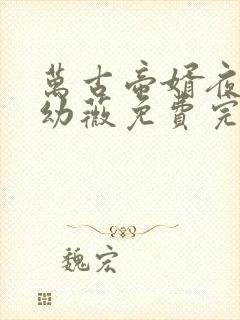 萬古帝婿夜
幼薇免費完
魏宏